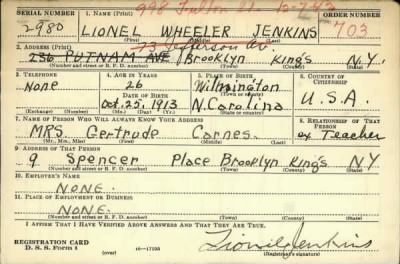 998 Fulton St. 12-7-43
SERIAL NUMBER 1. NAME (Print) ORDER NUMBER
2980 LIONEL WHEELER JENKINS 703
(First) (Middle) (Last)
73 Jefferson Av.
2. ADDRESS (Print)
256 PUTNAM AVE Brooklyn Kings N.Y.
(Number and street or R. F. D. number) (Town) (County) (State)
3. TELEPHONE 4. AGE IN YEARS 5. PLACE OF BIRTH 6. COUNTRY OF CITIZENSHIP
None 26 Wilmington U.S.A.
DATE OF BIRTH (Town or county)
Oct. 25, 1913 N. Carolina
(Exchange) (Number) (Mo.) (Day) (Yr.) (State or country)
7. NAME OF PERSON WHO WILL ALWAYS KNOW YOUR ADDRESS 8. RELATIONSHIP OF THAT PERSON
MRS. Gertrude Carnes. ex Teacher
(Mr., Mrs., Miss) (First) (Middle) (Last)
9. ADDRESS OF THAT PERSON
9 Spencer Place Brooklyn Kings NY
(Number and street or R. F. D. number) (Town) (County) (State)
10. EMPLOYER'S NAME
NONE.
11. PLACE OF EMPLOYMENT OR BUSINESS
NONE.
(Number and street or R. F. D. number) (Town) (County) (State)
I AFFIRM THAT I HAVE VERIFIED ABOVE ANSWERS AND THAT THEY ARE TRUE.
REGISTRATION CARD
D. S. S. Form 1
(over) 16-17105
Lionel Jenkins
(Registrant's signature)